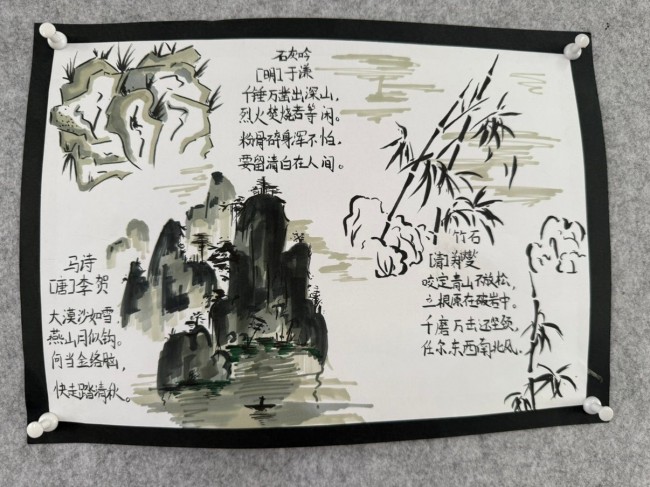 石灰吟
[明]于谦
千锤万凿出深山，
烈火焚烧若等闲。
粉骨碎身浑不怕，
要留清白在人间。
马诗
[唐]李贺
大漠沙如雪
燕山月似钩。
何当金络脑，
快走踏清秋。
竹石
[清]郑燮
咬定青山不放松，
立根原在破岩中。
千磨万击还坚劲，
任尔东西南北风。